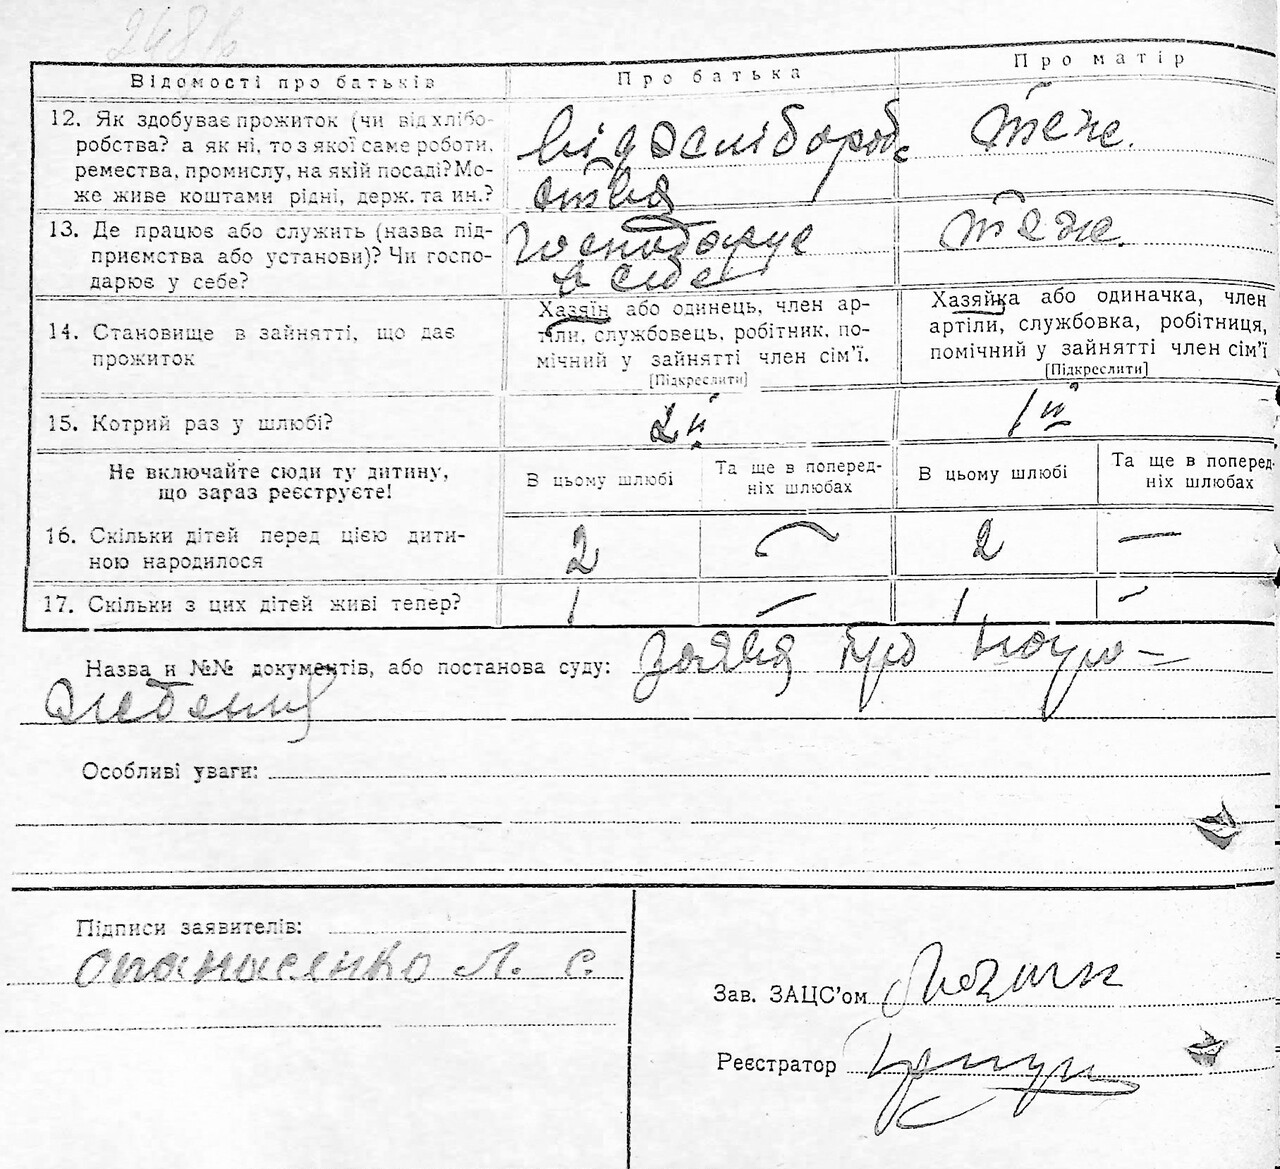 248 в
Відомості про батьків
Про батька
Про матір
12. Як здобуває прожиток (чи від хлібо-
робства? а як ні, то з якої саме роботи,
ремества, промислу, на якій посаді? Мо-
же живе коштами рідні, держ. та ин.?
від хлібороб
ства
теж.
13. Де працює або служить (назва під-
приємства або установи)? Чи госпо-
дарює у себе?
господарує
в себе
теж.
14. Становище в зайнятті, що дає
прожиток
Хазяїн або одинець, член ар-
тіли, службовець, робітник, по-
мічний у зайнятті член сім’ї.
[Підкреслити]
Хазяйка або одиначка, член
артіли, службовка, робітниця,
помічний у зайнятті член сім’ї
[Підкреслити]
15. Котрий раз у шлюбі?
2й
1й
Не включайте сюди ту дитину,
що зараз реєструєте!
В цьому шлюбі
Та ще в поперед-
ніх шлюбах
В цьому шлюбі
Та ще в поперед-
ніх шлюбах
16. Скільки дітей перед цією дити-
ною народилося
2
—
2
—
17. Скільки з цих дітей живі тепер?
1
—
1
—
Назва и №№ документів, або постанова суду: заява про
Особливі уваги:
Підписи заявителів:
Опанасенко Л. С.
Зав. ЗАЦС’ом
Реєстратор